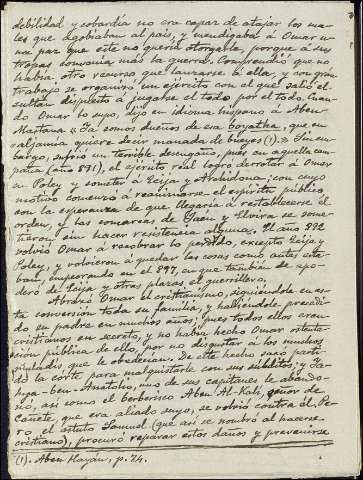 debilidad y cobardía no era capaz de atajar los ma-
les que agobiaban al país, y mendigaba á Omar u-
na paz que éste no quería otorgarle, porque á sus
tropas convenía más la guerra. Comprendió que no
había otro recurso que lanzarse á ella, y con gran
trabajo se organizó un ejército con el que salió el
sultán dispuesto á jugarse el todo por el todo. Cuan-
do Omar lo supo, dijo en idioma hispano á Aben
Mastana: «Ya somos dueños de esa boyatha, que en
aljamía quiere decir manada de bueyes (1).» Sin em-
bargo, sufrió un terrible desengaño, pues en aquella cam-
paña (año 891), el ejército real logró derrotar á Omar
en Poley y someter á Écija y Archidona; con cuyo
motivo comenzó á reanimarse el espíritu público
con la esperanza de que llegaría á restablecerse el
orden, y las comarcas de Jaén y Elvira se some-
tieron sin hacer resistencia alguna. El año 892
volvió Omar á recobrar lo perdido, excepto Écija y
Poley, y volvieron á quedar las cosas como antes esta-
ban, empeorando en el 897, en que también se apo-
deró de Écija y otras plazas el guerrillero.
Abrazó Omar el cristianismo, siguiéndole en es-
ta conversión toda su familia, y habiéndole precedi-
do su padre en muchos años; pues todos ellos eran
cristianos en secreto, y no había hecho Omar ostenta-
ción pública de ello, por no disgustar á los muchos
muladís que le obedecían. De este hecho sacó parti-
do la corte para malquistarle con sus súbditos; y Ya-
hya-ben-Anatolio, uno de sus capitanes le abando-
nó, así como el berberisco Aben Al-Kali, señor de
Cañete que era aliado suyo, se volvió contra él. Pe-
ro el astuto Samuel (que así se nombró al hacerse
cristiano), procuró reparar estos daños y prevenirse
(1). Aben Hayán, p. 74.